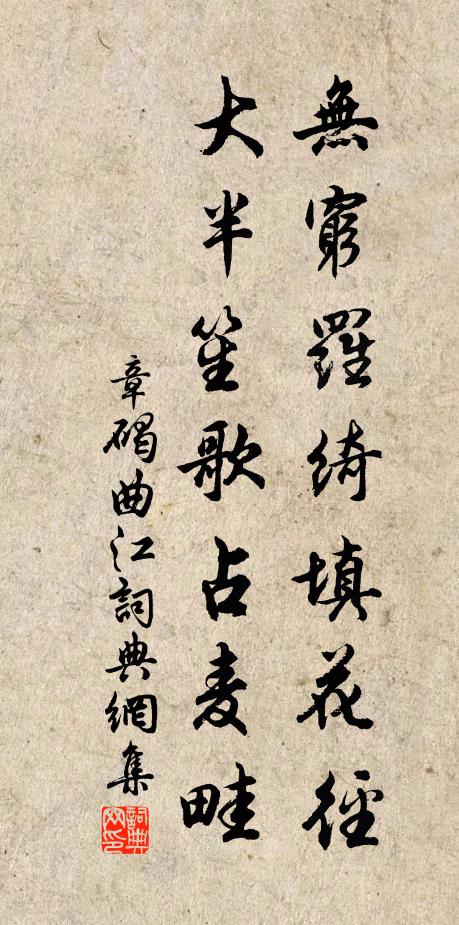 無窮羅綺填花徑
大半笙歌占麦畦
章碣曲江詞典網集
詞典网印